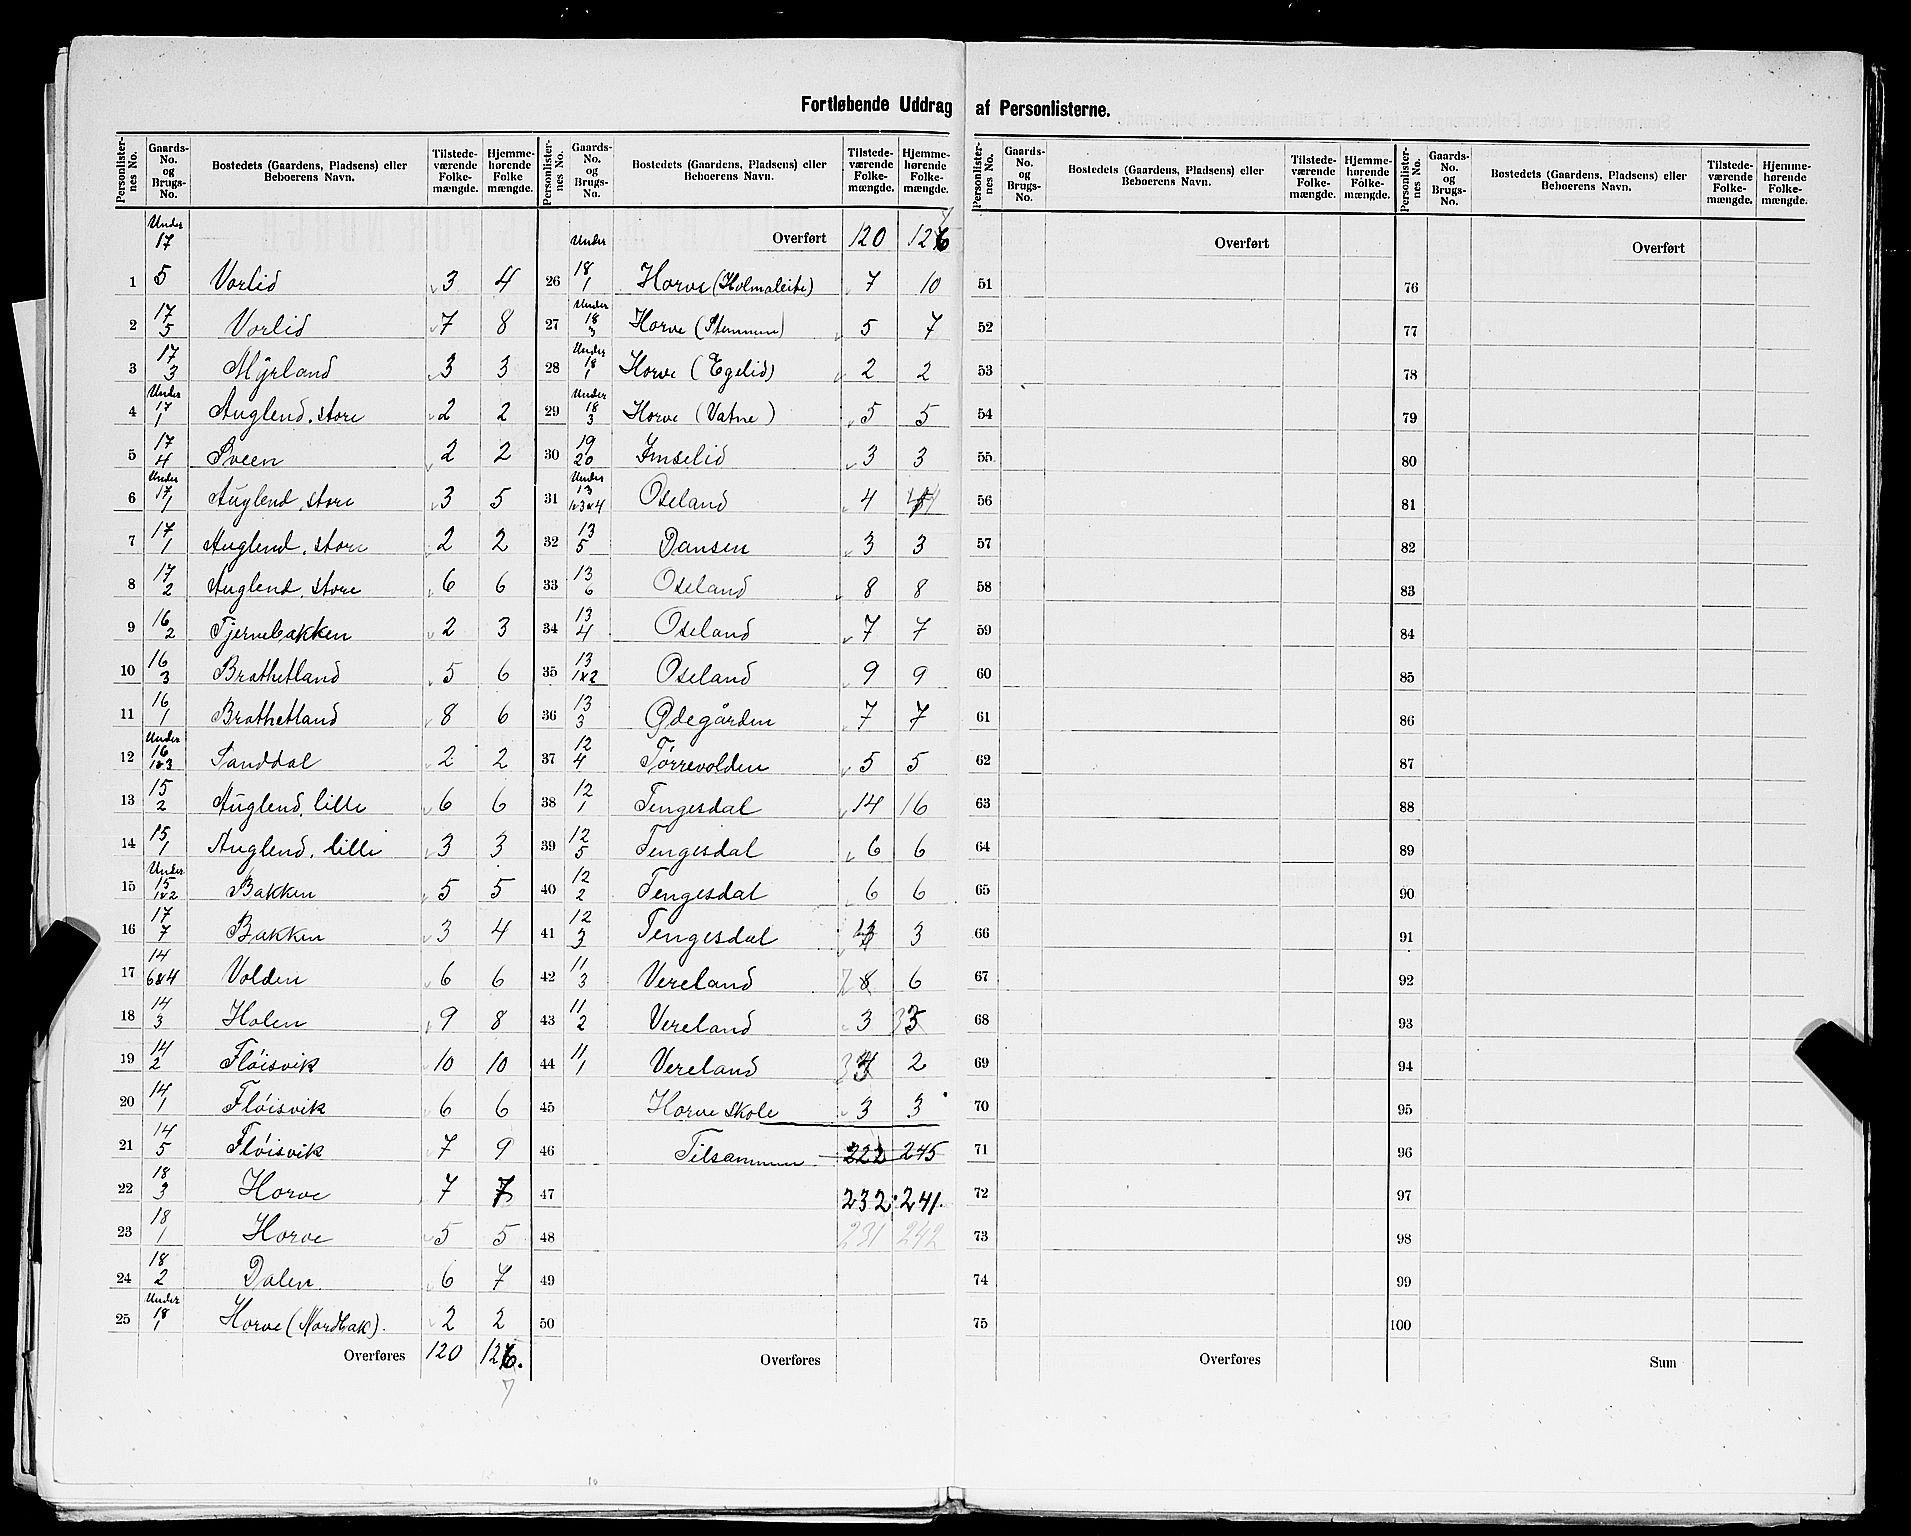 Fortløbende Uddrag af Personlisterne.
Personlister-nes No. | Gaards-No. og Brugs-No. | Bostedets (Gaardens, Pladsens) eller Beboerens Navn. | Tilstede-værende Folke-mængde. | Hjemme-hørende Folke mængde.
1 Under 17 5 Vorlid 3 4
2 17 5 Vorlid 7 8
3 17 3 Myrland 3 3
4 Under 17 1 Auglend, store 2 2
5 17 4 Sveen 2 2
6 Under 17 1 Auglend, store 3 5
7 17 1 Auglend, store 2 2
8 17 2 Auglend, store 6 6
9 16 2 Tjernebakken 2 3
10 16 3 Brathetland 5 6
11 16 1 Brathetland 8 6
12 Under 16 1&3 Sanddal 2 2
13 15 2 Auglend, lille 6 6
14 15 1 Auglend, lille 3 3
15 Under 15 1&2 Bakken 5 5
16 17 7 Bakken 3 4
17 14 6&4 Volden 6 6
18 14 3 Holen 9 8
19 14 2 Fløisvik 10 10
20 14 1 Fløisvik 6 6
21 14 5 Fløisvik 7 9
22 18 3 Horve 7 7
23 18 1 Horve 5 5
24 18 2 Dalen 6 7
25 Under 18 1 Horve (Nordbak). 2 2
Overføres 120 126.
7
Personlister-nes No. | Gaards-No. og Brugs-No. | Bostedets (Gaardens, Pladsens) eller Beboerens Navn. | Tilstede-værende Folke-mængde. | Hjemme-hørende Folke-mængde.
Overført 120 126
26 Under 18 1 Horve (Holmaleite) 7 10
27 Under 18 3 Horve (Stemmen) 5 7
28 Under 18 1 Horve (Egelid) 2 2
29 Under 18 3 Horve (Vatne) 5 5
30 19 20 Imselid 3 3
31 Under 13 1&3&4 Oseland 4
32 13 5 Dansen 3 3
33 13 6 Oseland 8 8
34 13 4 Oseland 7 7
35 13 1&2 Oseland 9 9
36 13 3 Ødegården 7 7
37 12 4 Tørrevolden 5 5
38 12 1 Tengesdal 14 16
39 12 5 Tengesdal 6 6
40 12 2 Tengesdal 6 6
41 12 3 Tengesdal 3
42 11 3 Vereland 7 8 6
43 11 2 Vereland 3 3
44 11 1 Vereland 3 2
45 Horve skole 3 3
46 Tilsammen 222 245
47 232 241.
48 231 242
49
50
Overføres
Personlister-nes No. | Gaards-No. og Brugs-No. | Bostedets (Gaardens, Pladsens) eller Beboerens Navn. | Tilstede-værende Folke-mængde. | Hjemme-hørende Folke-mængde.
Overført
51
52
53
54
55
56
57
58
59
60
61
62
63
64
65
66
67
68
69
70
71
72
73
74
75
Overføres
Personlister-nes No. | Gaards-No. og Brugs-No. | Bostedets (Gaardens, Pladsens) eller Beboerens Navn. | Tilstede-værende Folke-mængde. | Hjemme-hørende Folke-mængde.
Overført
76
77
78
79
80
81
82
83
84
85
86
87
88
89
90
91
92
93
94
95
96
97
98
99
100
Sum